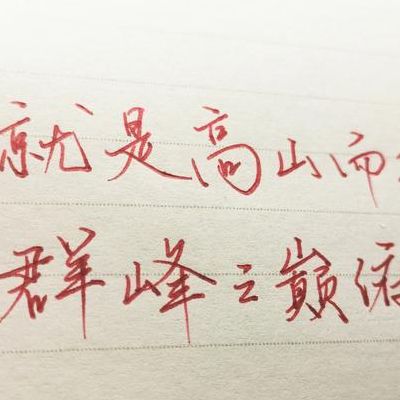 就是高山而
群峰之巅俯